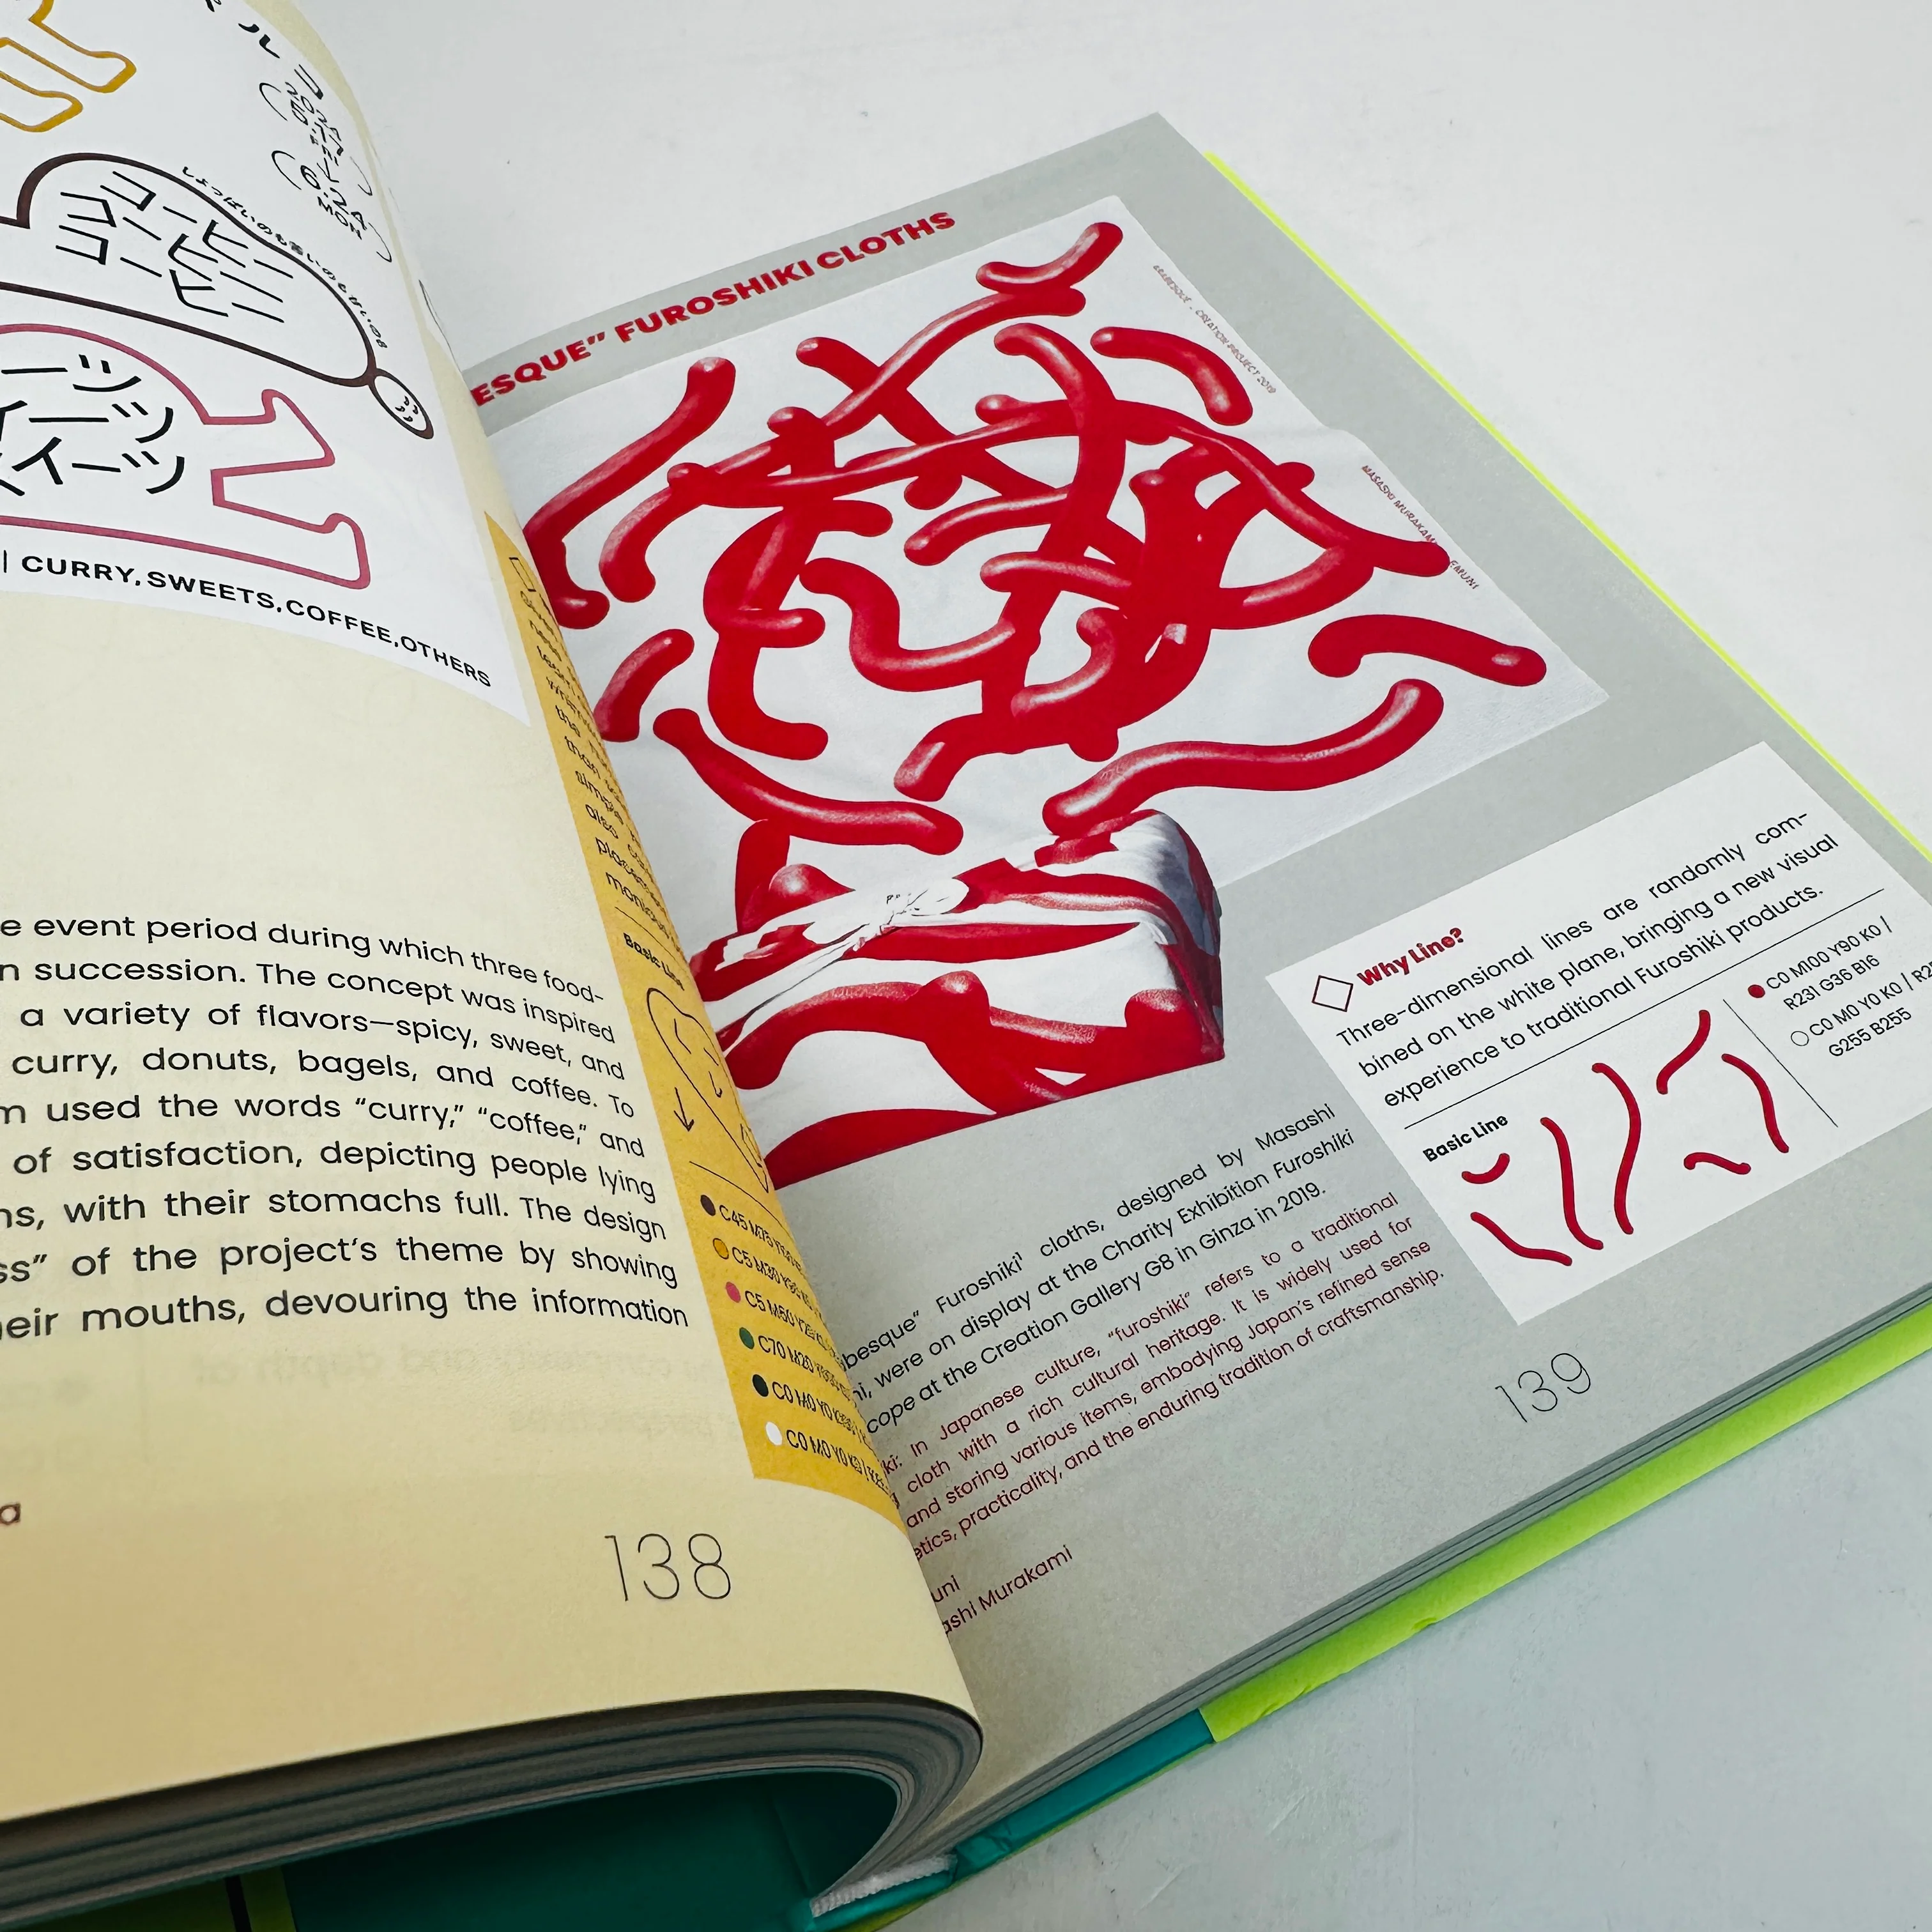 コーヒー
コーヒー
コーヒー
ーツ
イーツ
スイーツ
| CURRY, SWEETS, COFFEE, OTHERS
e event period during which three food-
n succession. The concept was inspired
a variety of flavors—spicy, sweet, and
curry, donuts, bagels, and coffee. To
m used the words “curry,” “coffee,” and
of satisfaction, depicting people lying
ns, with their stomachs full. The design
ss” of the project’s theme by showing
heir mouths, devouring the information
a
138
Basic Line
C45 M75
C5 M30
C5 M60
C70 M20
C0 M0 Y0
C0 M0 Y0 K0
ESQUE” FUROSHIKI CLOTHS
ARABESQUE - CREATION PROJECT 2019
MASASHI MURAKAMI EMUNI
Why Line?
Three-dimensional lines are randomly com-
bined on the white plane, bringing a new visual
experience to traditional Furoshiki products.
Basic Line
C0 M100 Y90 K0 /
R231 G36 B16
C0 M0 Y0 K0 / R25
G255 B255
besque” Furoshiki¹ cloths, designed by Masashi
ni, were on display at the Charity Exhibition Furoshiki
cope at the Creation Gallery G8 in Ginza in 2019.
ki: In Japanese culture, “furoshiki” refers to a traditional
cloth with a rich cultural heritage. It is widely used for
and storing various items, embodying Japan’s refined sense
etics, practicality, and the enduring tradition of craftsmanship.
uni
ashi Murakami
139